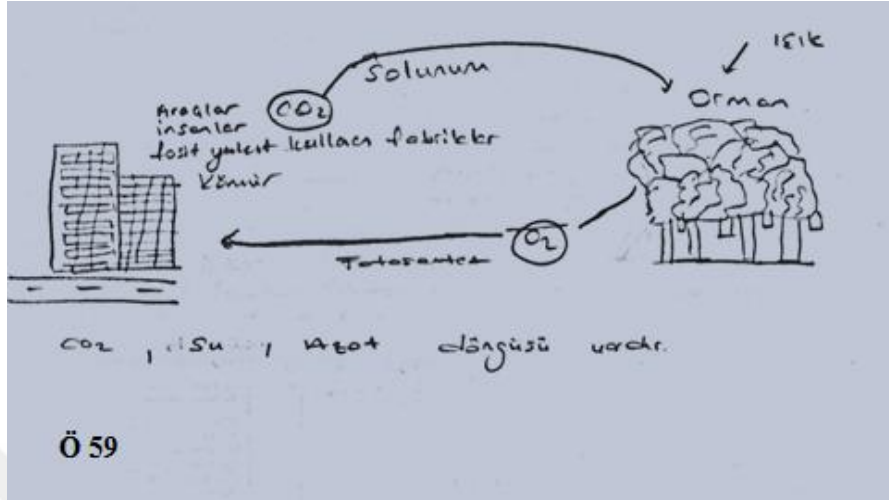 ışık
Solunum
Orman
CO2
Araçlar
insanlar
fosil yakıt kullanan fabrikalar
Kömür
O2
Fotosentez
CO2, Su, Azot döngüsü vardır.
Ö 59